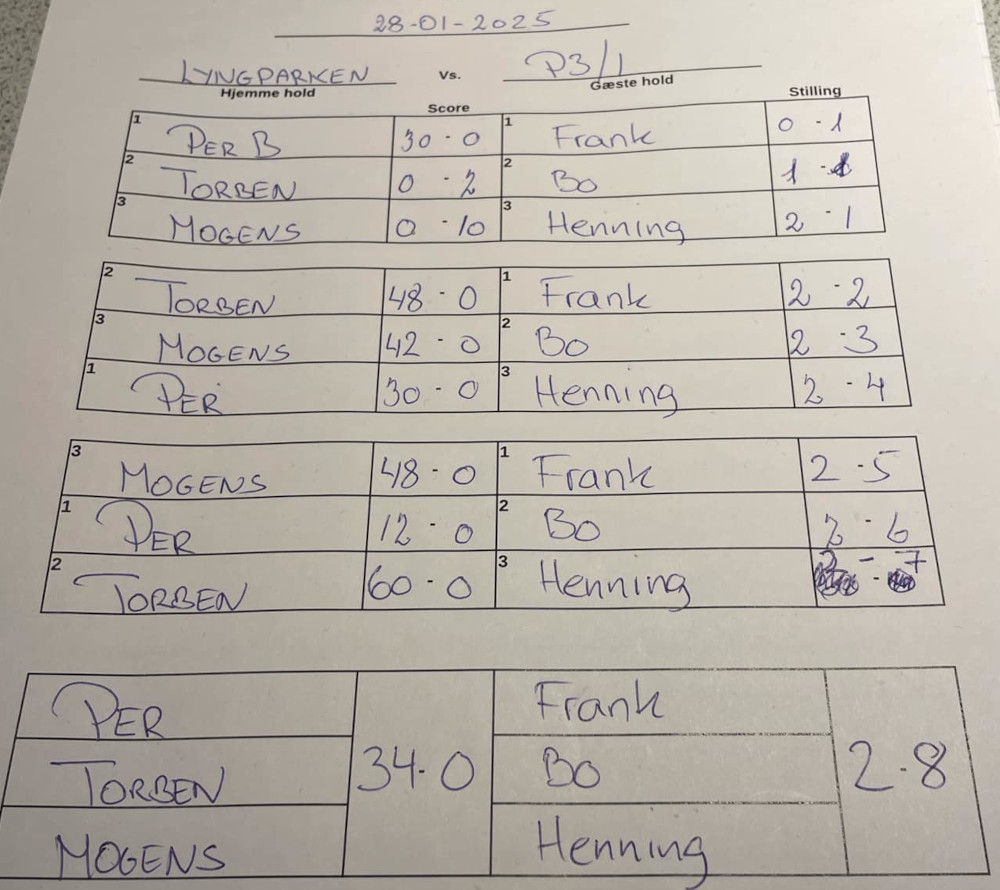 28-01-2025
LYNGPARKEN Vs. P3/1
Hjemme hold Gæste hold
Score Stilling
1 PER B 30-0 1 Frank 0-1
2 TORBEN 0-2 2 Bo 1-1
3 MOGENS 0-10 3 Henning 2-1
2 TORBEN 48-0 1 Frank 2-2
3 MOGENS 42-0 2 Bo 2-3
1 PER 30-0 3 Henning 2-4
3 MOGENS 48-0 1 Frank 2-5
1 PER 12-0 2 Bo 2-6
2 TORBEN 60-0 3 Henning 2-7
PER Frank
TORBEN 34-0 Bo 2-8
MOGENS Henning